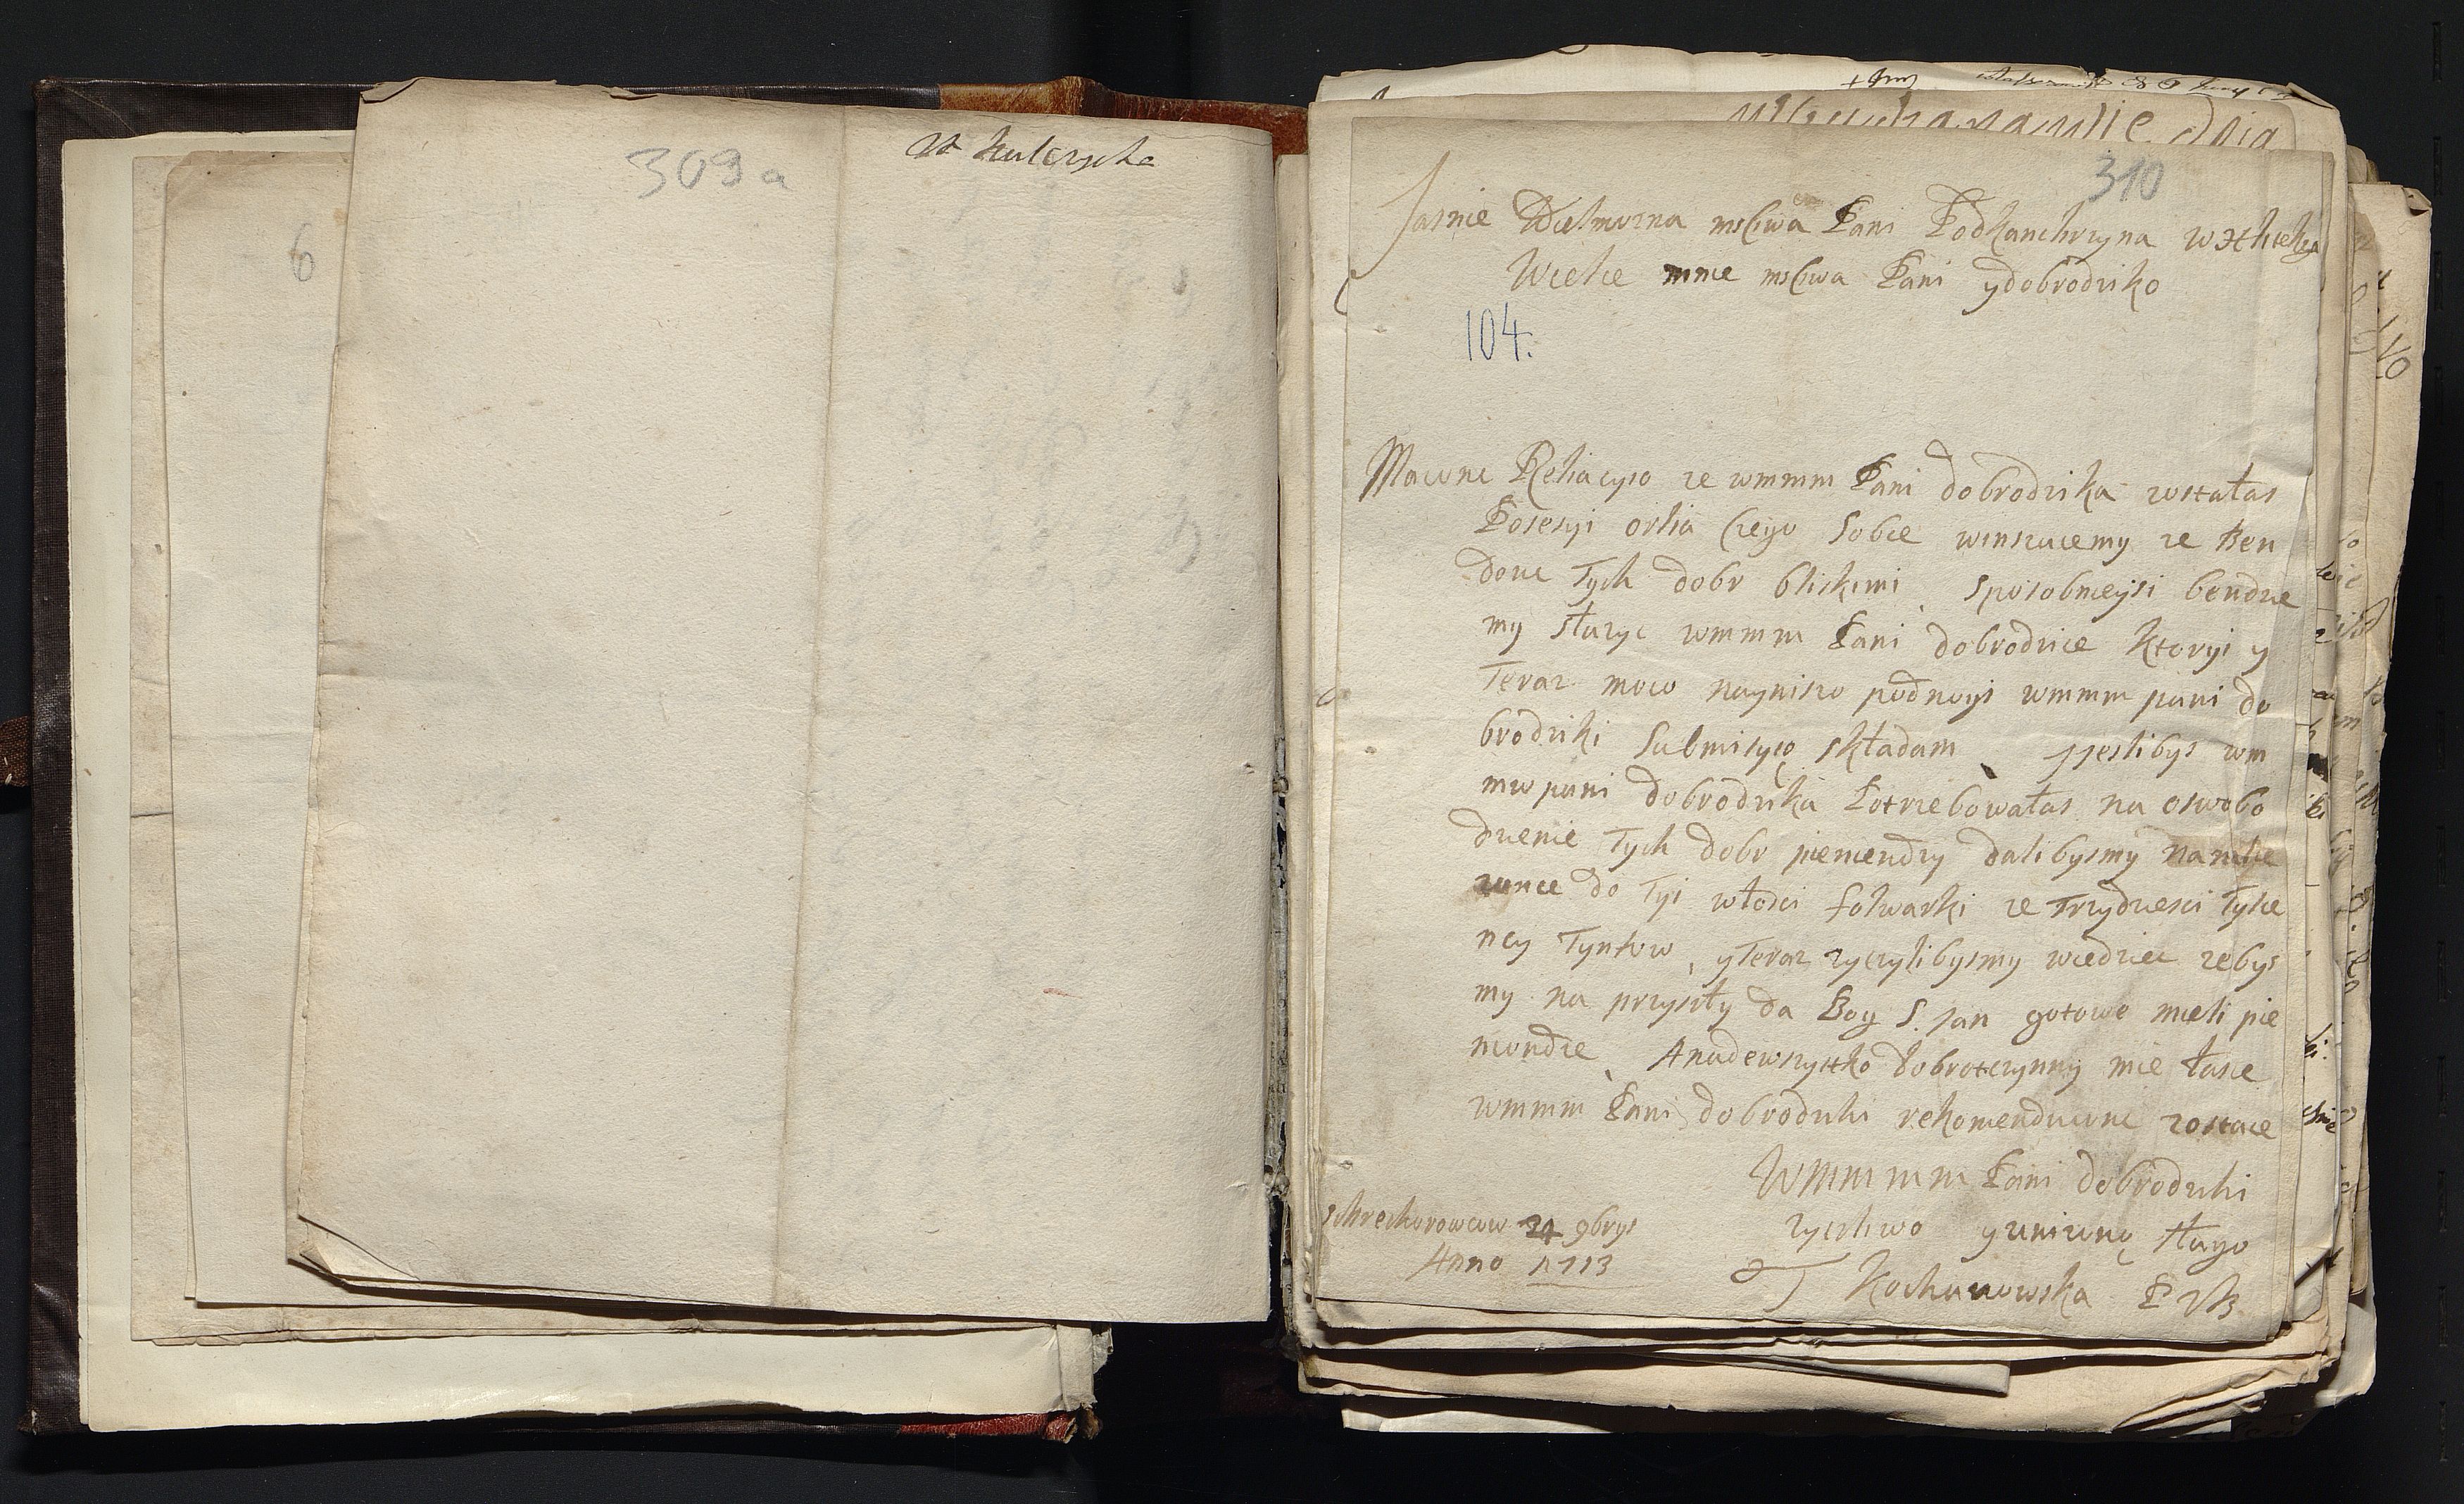 309a
6
310
Jasnie Wielmozna msciwa Pani Podkanclerzyna WXLitelska
Wielce mnie msciwa Pani y dobrodziko
104.
Mawne Reliacyio ze wmmm Pani dobrodzika zostałas
Posesyi orlia czego Sobie winszuiemy ze Ben
donc Tych dobr bliskimi, Sposobnieysi bendzie
my słuzyc wmmm Pani dobrodzice ktoryi y
Teraz moio nayniszo podnogi wmmm pani do
brodziki Submisyię składam, yieslibys wm
mw pani dobrodzika Potrzebowałas na oswobo
dzenie Tych dobr pieniendzy dalibysmy na
do Tyi włosci folwarki ze Trzydziesci Tysie
ncy Tynfow, y Teraz zyczylibysmy wiedziec zebys
my na przyszły da Bog S. Jan gotowe mieli pie
niondze, Anadewszystko dobroczynny mie łasce
wmmm Pani dobrodziki rekomenduionc zostaie
Wmmmm Pani dobrodziki
zyczliwo y unizono sługo
Kochanowska
24 9brys
Anno 1713